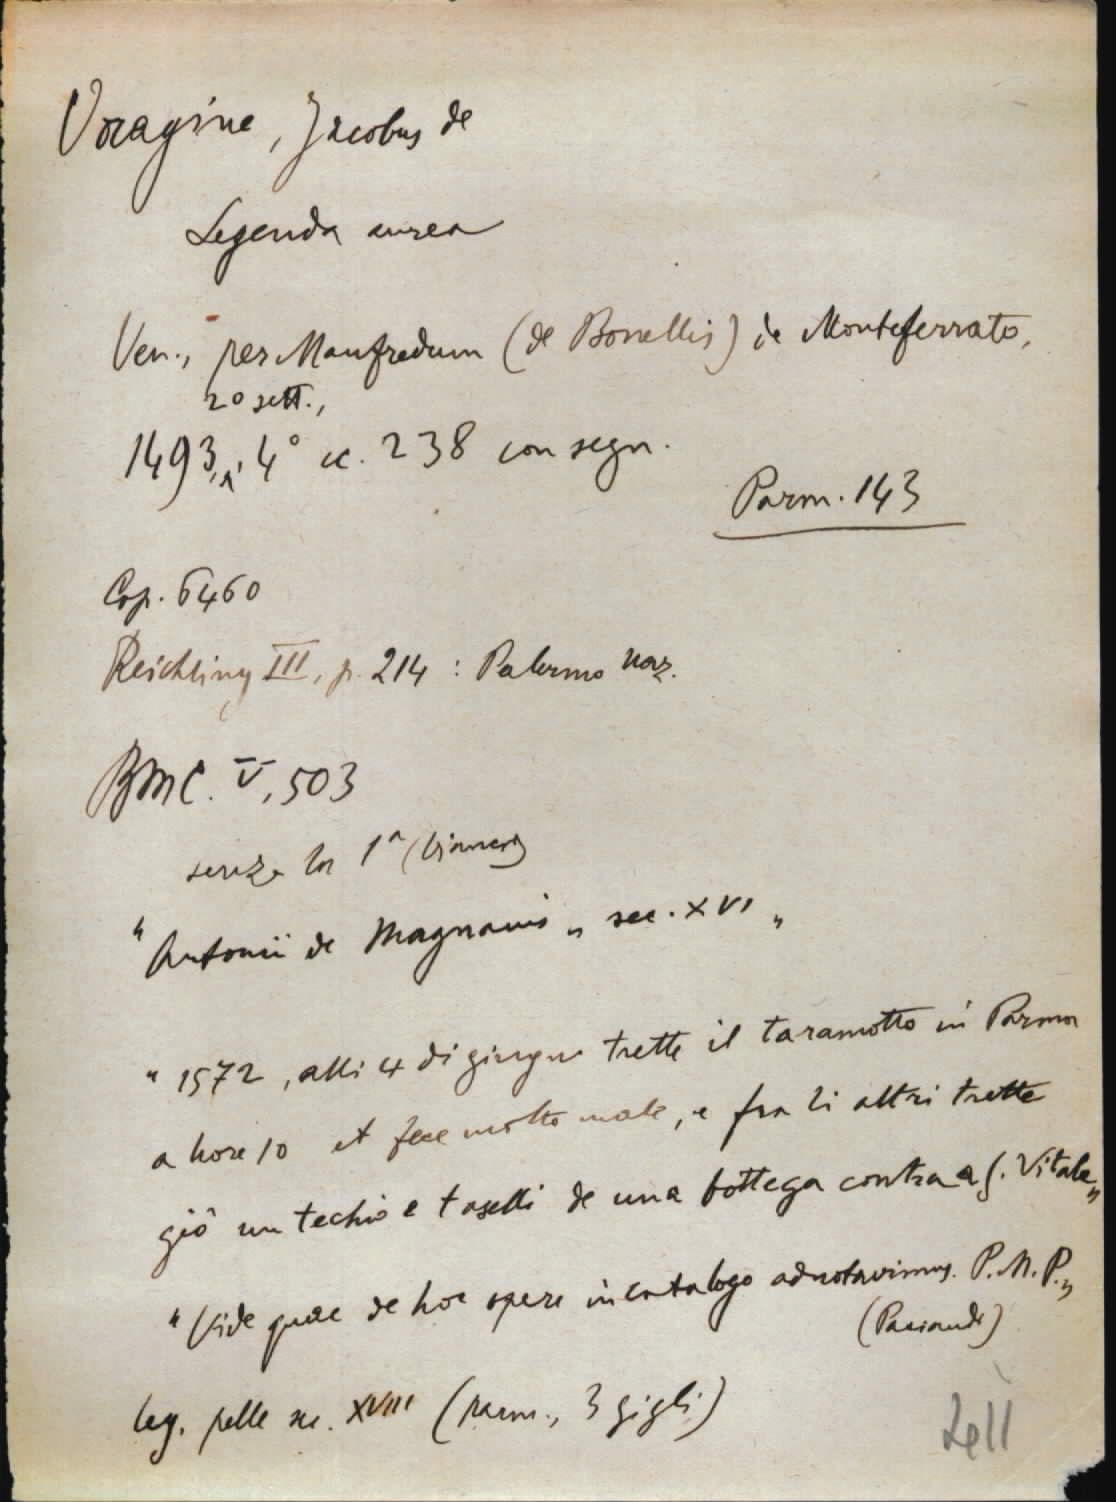 Voragine, Jacobus de
Legenda aurea
Ven., per Manfredum (de Bonellis) de Monteferrato,
20 sett.,
1493, 4° cc. 238 con segn.
Parm. 143
Cop. 6460
Reichling III, p. 214 : Palermo naz.
BMC. V, 503
senza la 1ª (bianca)
"Antonii de Magnanis„ sec. XVI„
"1572, alli 4 di giugn trette il taramotto in Parma
a hore 10 et fece molto male, e fra li altri trette
giò un techio e taselli de una bottega contra a S. Vitale„
"Vide quae de hoc opere in catalogo adnotavimus. P.M.P.„
(Paciaudi)
leg. pelle sec. XVIII (parm., 3 gigli)